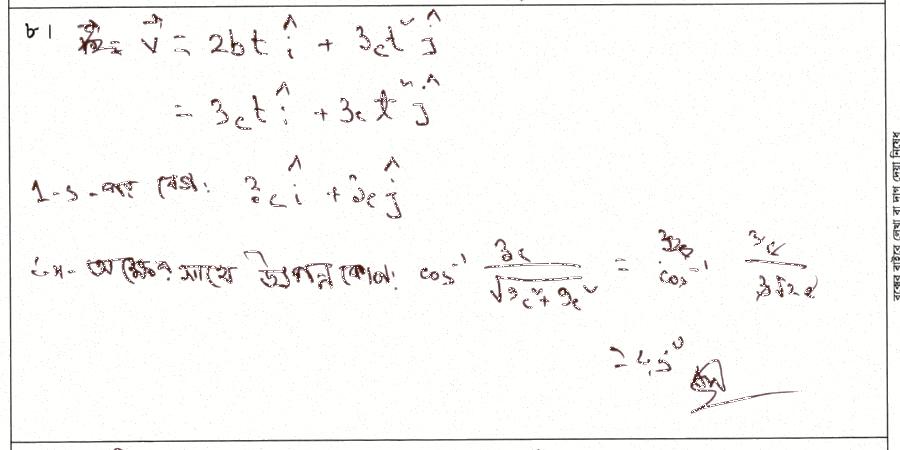 ৮। v⃗ = 2bt î + 3ct² ĵ
= 3ct î + 3ct² ĵ
1-s-পর বেগ: 3c î + 3c ĵ
x- অক্ষের সাথে উৎপন্ন কোণ: cos⁻¹ 3c/√9c²+9c² = cos⁻¹ 3c/3√2c
= 45°
বক্সের বাইরে লেখা বা দাগ দেয়া নিষেধ